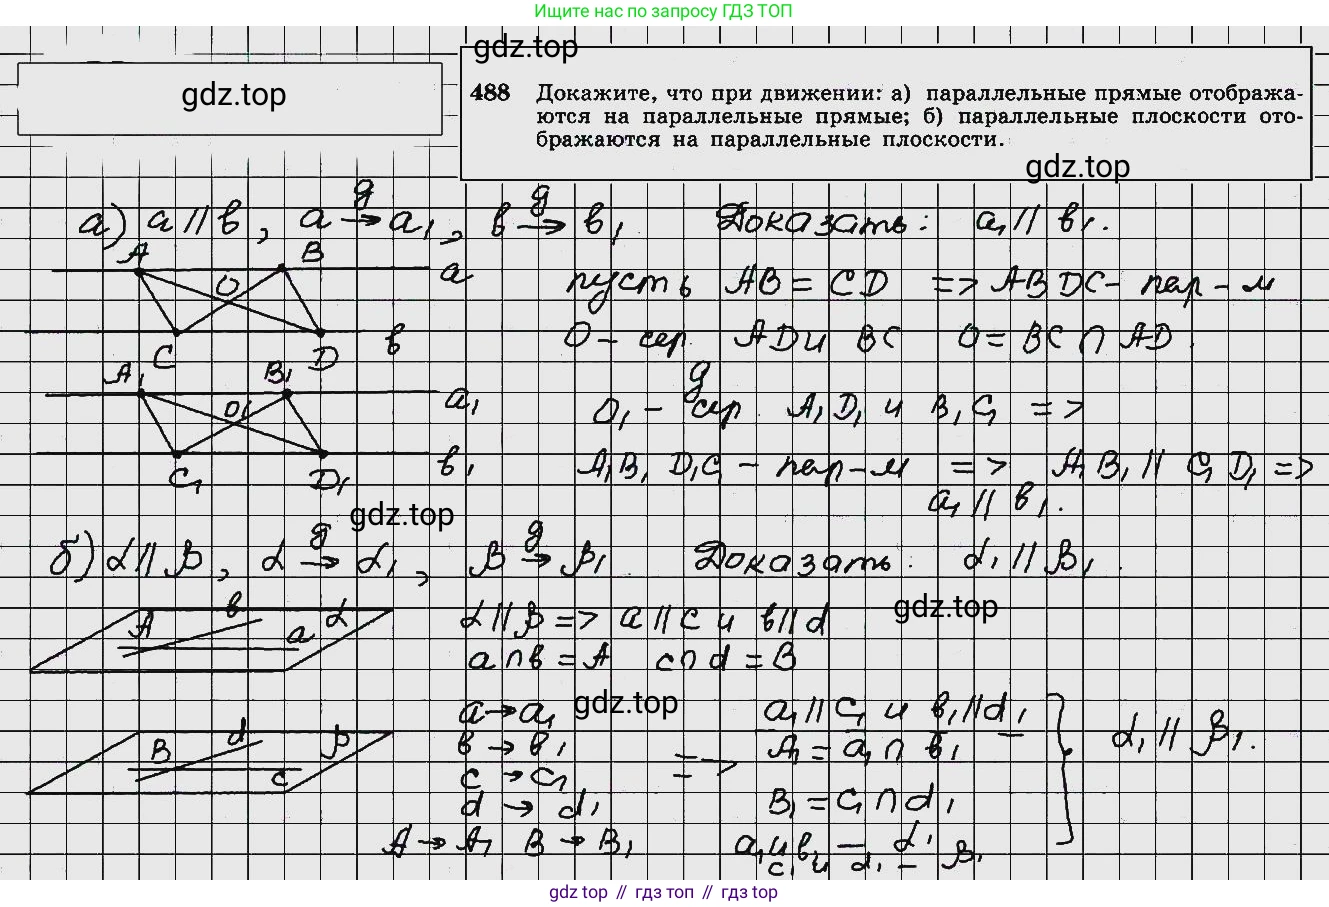 Ищите нас по запросу ГДЗ ТОП
gdz.top
gdz.top
488 Докажите, что при движении: а) параллельные прямые отобража-
ются на параллельные прямые; б) параллельные плоскости ото-
бражаются на параллельные плоскости.
gdz.top
а) a // b, a →д a₁, b →д b₁ Доказать: a₁ // b₁.
A B a
O
C D b
пусть AB = CD => ABDC - пар-м
O - сер. AD и BC O = BC ∩ AD.
A₁ B₁ a₁
O₁
C₁ D₁ b₁
д
O₁ - сер. A₁D₁ и B₁C₁ =>
A₁B₁D₁C₁ - пар-м => A₁B₁ // C₁D₁ =>
a₁ // b₁.
gdz.top
б) α // β, α →д α₁, β →д β₁ Доказать: α₁ // β₁.
gdz.top
A b a α
α // β => a // c и b // d
a ∩ b = A c ∩ d = B
gdz.top
B d c β
a → a₁
b → b₁
c → c₁
d → d₁
A → A₁ B → B₁
=>
a₁ // c₁ и b₁ // d₁
A₁ = a₁ ∩ b₁
B₁ = c₁ ∩ d₁
a₁ и b₁ — α₁
c₁ и d₁ — β₁
} α₁ // β₁.
gdz.top // гдз топ // gdz.top